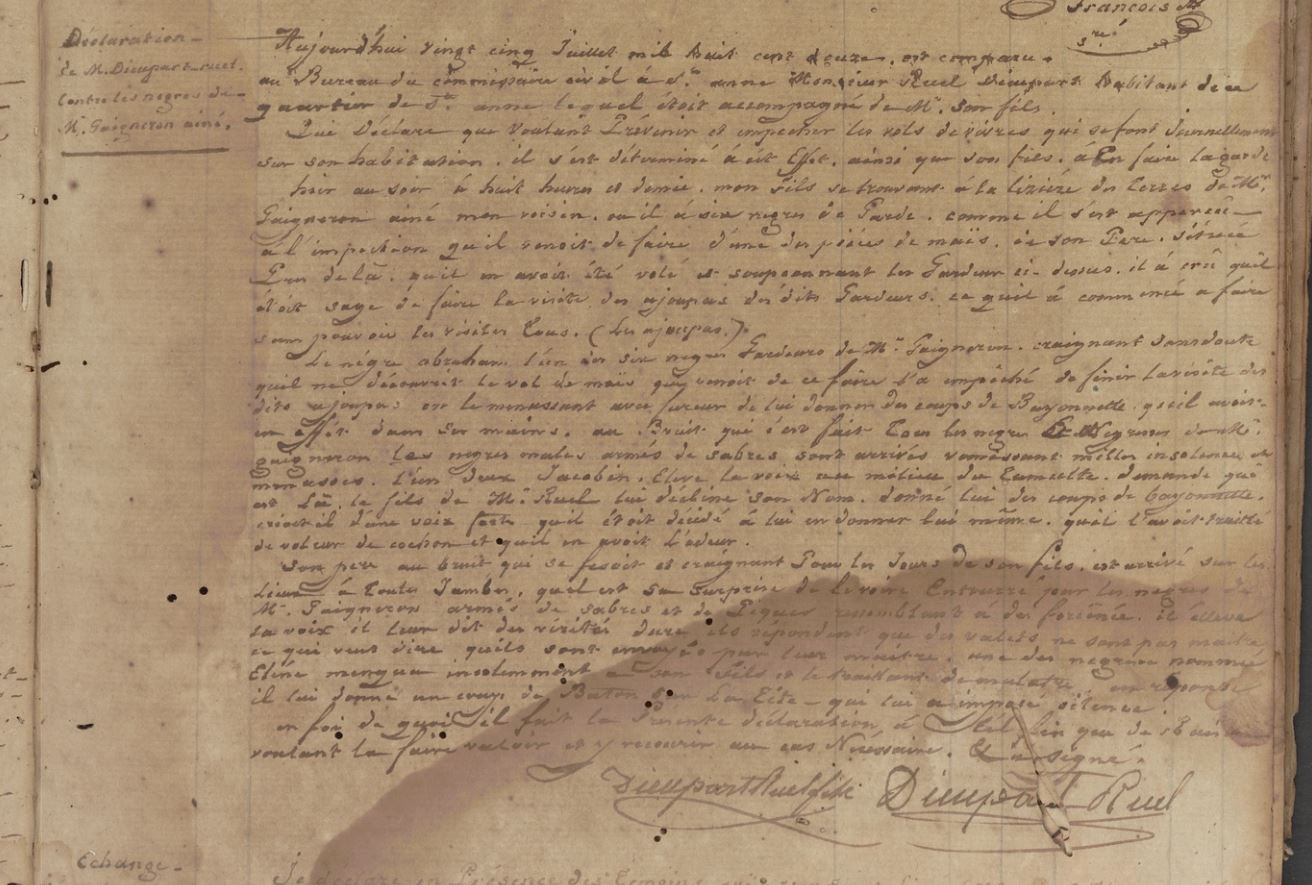 François
sre
Déclaration
de M. Dieupart ruel.
Contre les negres de
M. Gaigneron ainé.
Aujourd'hui vingt cinq Juillet mil huit cent douze, est comparu
au Bureau du commissaire civil à Ste anne Monsieur Ruel Dieupart habitant de ce
quartier de Ste anne lequel étoit accompagné de Mr. son fils.
Qui Déclare que voulant Prévenir et empecher les vols de vivres qui se font Journellement
sur son habitation, il s'est déterminé à cet Effet, ainsi que son fils, à En faire la garde
hier au soir à huit heures et demie, mon fils se trouvant à la liziére des terres de Mr.
Gaigneron ainé mon voisin, ou il à six negres de Garde, comme il s'est apperçu
à l'inspection qu'il venoit de faire d'une des piéces de maïs, de son Pere, située
Pres de là, qu'il en avoit été volé et soupçonnant les Gardeurs ci-dessus, il à crû qu'il
étoit sage de faire la visite des ajoupas des dits Gardeurs, ce qu'il à commencé a faire
sans pouvoir les visiter tous. (Les ajoupas.).
Le négre abraham l'un des six negres Gardeurs de Mr. Gaigneron, craignant sans doute
qu'il ne découvrit le vol de maïs qui venoit de ce faire l'a empêché de finir la visite des
dits ajoupas en le menassant avec fureur de lui donner des coups de Bayonnette, qu'il avoit
en effet dans ses mains, au Bruit qui s'est fait tous les negres et Negresses de Mr.
gaigneron les negres males armés de sabres sont arrivés vomissant milles insolences et
menasses, l'un deux Jacobin, Eleve la voix au milieu du tumulte, demande qui
est là, le fils de Mr. Ruel lui décline son Nom, donné lui des coups de bayonnette,
crioit il d'une voix forte qu'il étoit décidé à lui en donner lui même, qu'il l'avoit traité
de voleur de cochon et qu'il en avoit l'odeur.
Son pere au bruit que se fesoit et craignant Pour les Jours de son fils, est arrivé sur les
Lieux à toutes Jambes, quel est sa surprise de le voire Entourré par les negres de
Mr. Gaigneron armés de sabres et de Piques ressemblant à des forcenés, il éleve
la voix il leur dit des vérités dures, ils répondent que des valets ne sont pas maitre
ce qui veut dire qu'ils sont envoyés par leur maitre, une des negresse nommée
Eline menqua insolemment a son fils et le traittant de mulatre, en réponse
il lui donné un coup de Baton sur la Tête, qui lui a imposé silence.
en foi de quoi il fait la Présente déclaration à telle fin que de
voulant la faire valoir et y recourir au cas Nécessaire. Et a signé.
Dieupart Ruel fils Dieupart Ruel
Echange
Je déclare en Présence des temoins